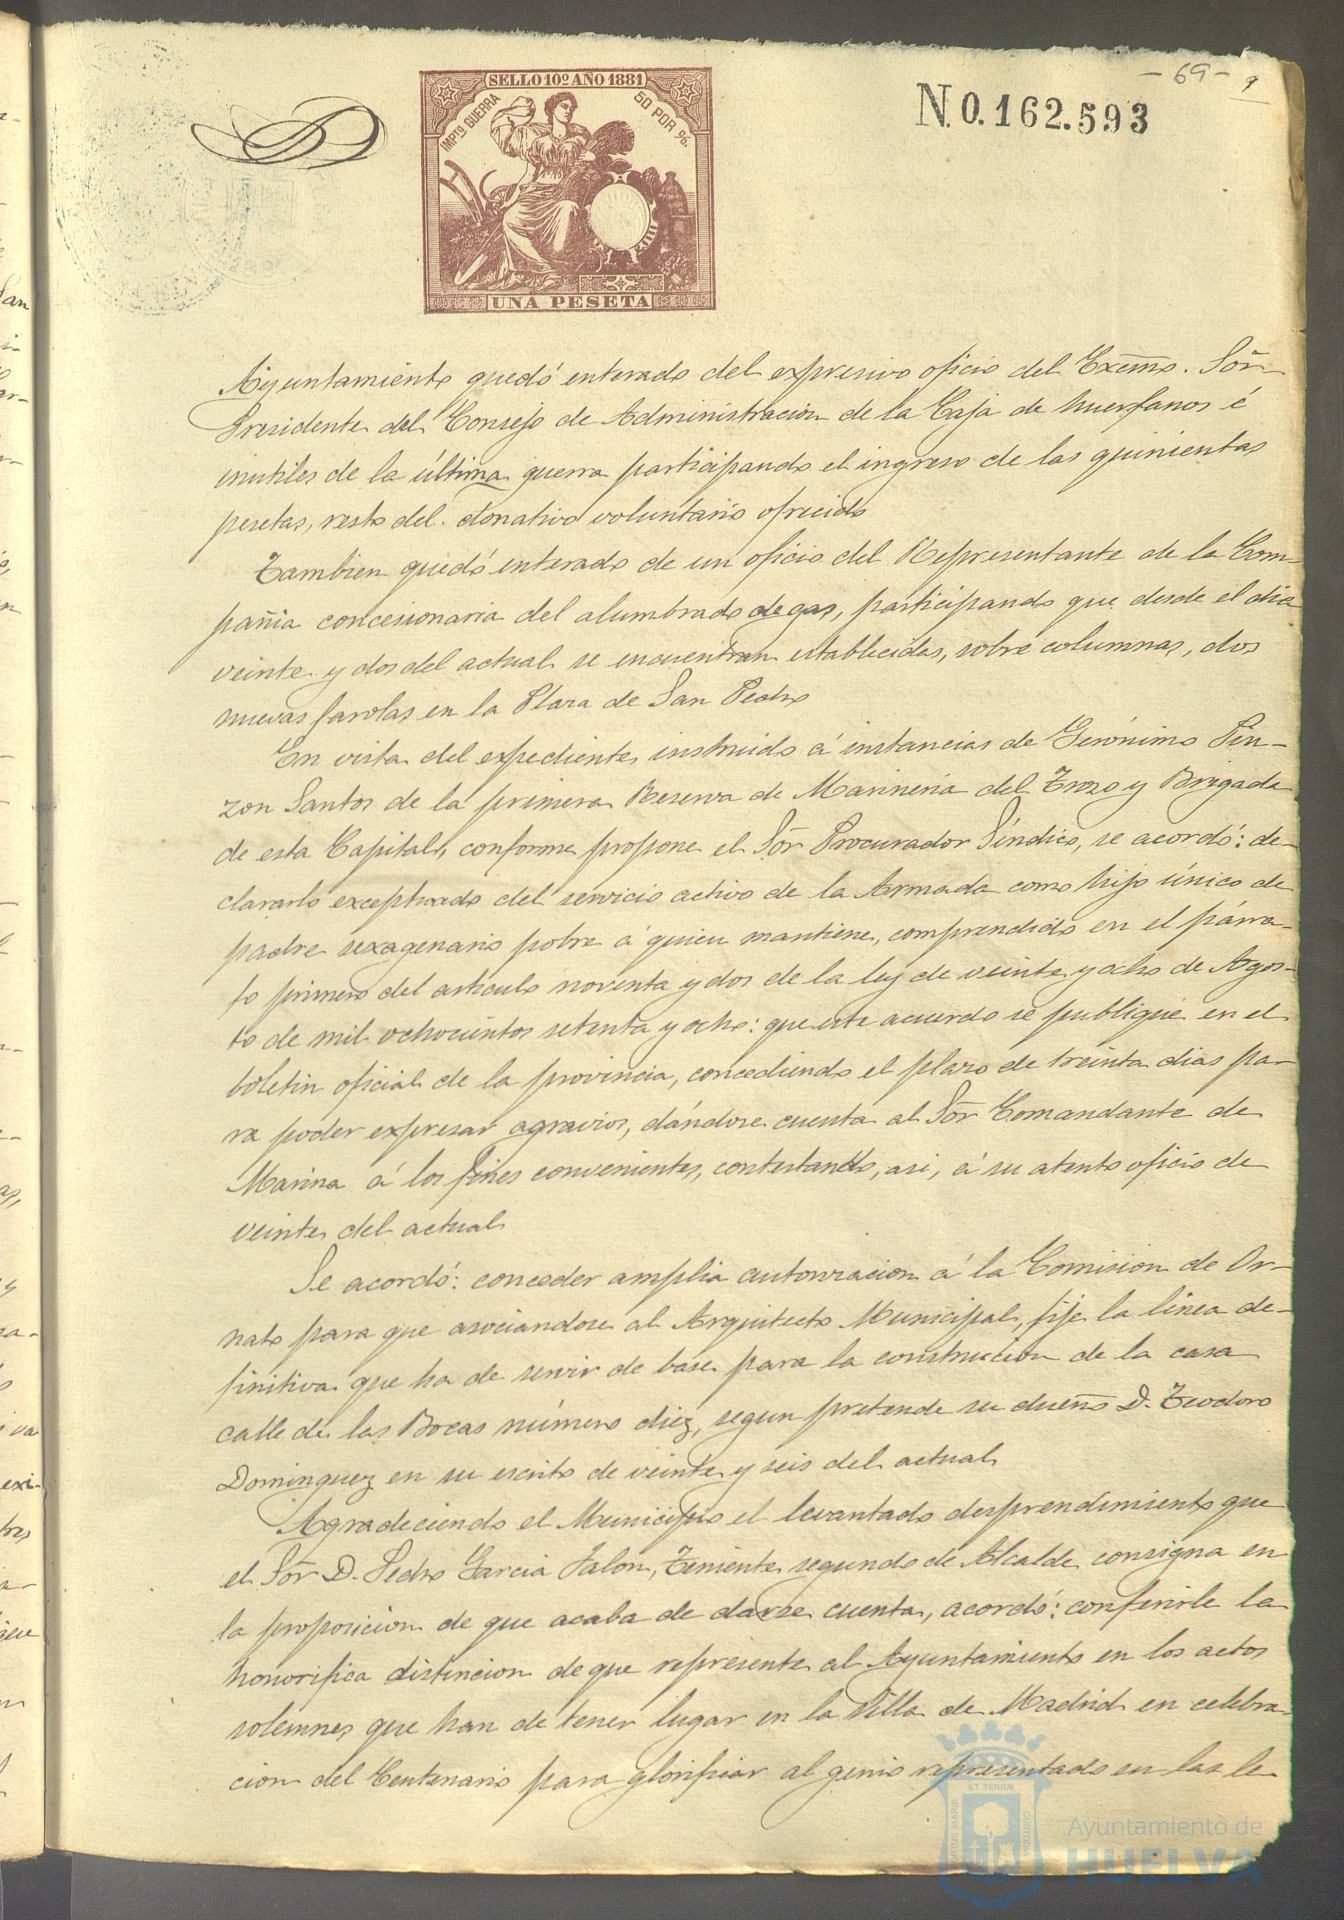 - 69 - 9
SELLO 10º AÑO 1881
IMPTO GUERRA
50 POR %.
N. 0.162.593
UNA PESETA
Ayuntamiento quedó enterado del expresivo oficio del Excmo. Sōr
Presidente del Consejo de Administracion de la Caja de huerfanos é
inutiles de la última guerra participando el ingreso de las quinientas
pesetas, resto del donativo voluntario ofrecido
Tambien quedó enterado de un oficio del Representante de la Com-
pañia concesionaria del alumbrado de gas, participando que desde el dia
veinte y dos del actual se encuentran establecidas, sobre columnas, dos
nuevas farolas en la Plaza de San Pedro
En vista del expediente instruido á instancias de Gerónimo Pin-
zon Santos de la primera Reserva de Marineria del Trozo y Brigada
de esta Capital, conforme propone el Sōr Procurador Síndico, se acordó: de-
clararlo exceptuado del servicio activo de la Armada como hijo único de
padre sexagenario pobre á quien mantiene, comprendido en el párra-
fo primero del articulo noventa y dos de la ley de veinte y ocho de Agos-
to de mil ochocientos setenta y ocho: que este acuerdo se publique en el
boletin oficial de la provincia, concediendo el plazo de treinta dias pa-
ra poder expresar agravios, dándose cuenta al Sōr Comandante de
Marina á los fines convenientes, contestando, asi, á su atento oficio de
veinte del actual
Se acordó: conceder amplia autorizacion á la Comision de Or-
nato para que asociandose al Arquitecto Municipal, fije la línea de-
finitiva que ha de servir de base para la construccion de la casa
calle de las Bocas número diez, segun pretende su dueño D. Teodoro
Dominguez en su escrito de veinte y seis del actual
Agradeciendo el Municipio el levantado desprendimiento que
el Sōr D. Pedro Garcia Jalon, Teniente segundo de Alcalde consigna en
la proposicion de que acaba de darse cuenta, acordó: conferirle la
honorifica distincion de que represente al Ayuntamiento en los actos
solemnes que han de tener lugar en la Villa de Madrid en celebra
cion del Centenario para glorificar al genio representado en las le
Ayuntamiento de
HUELVA